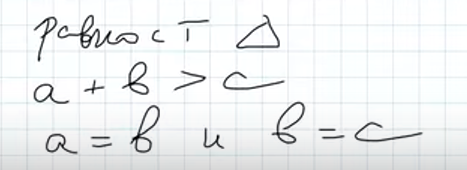 равност △
a + b > c
a = b и b = c